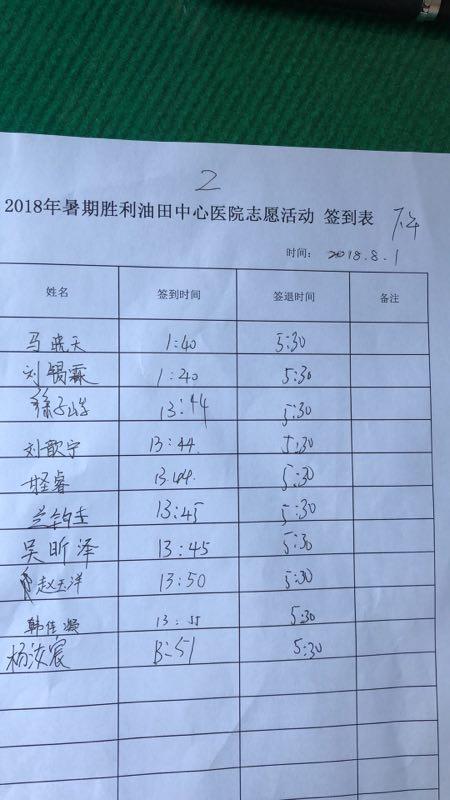 2
2018年暑期胜利油田中心医院志愿活动 签到表 下午
时间: 2018.8.1
姓名 签到时间 签退时间 备注
马晓天 1:40 5:30
刘锡霖 1:40 5:30
13:44 5:30
刘歆宁 13:44. 5:30
睿 13:44. 5:30
兰钧 13:45 5:30
吴昕泽 13:45 5:30
赵玉洋 13:50 5:30
韩佳凝 13:55 5:30
杨汝宸 13:51 5:30